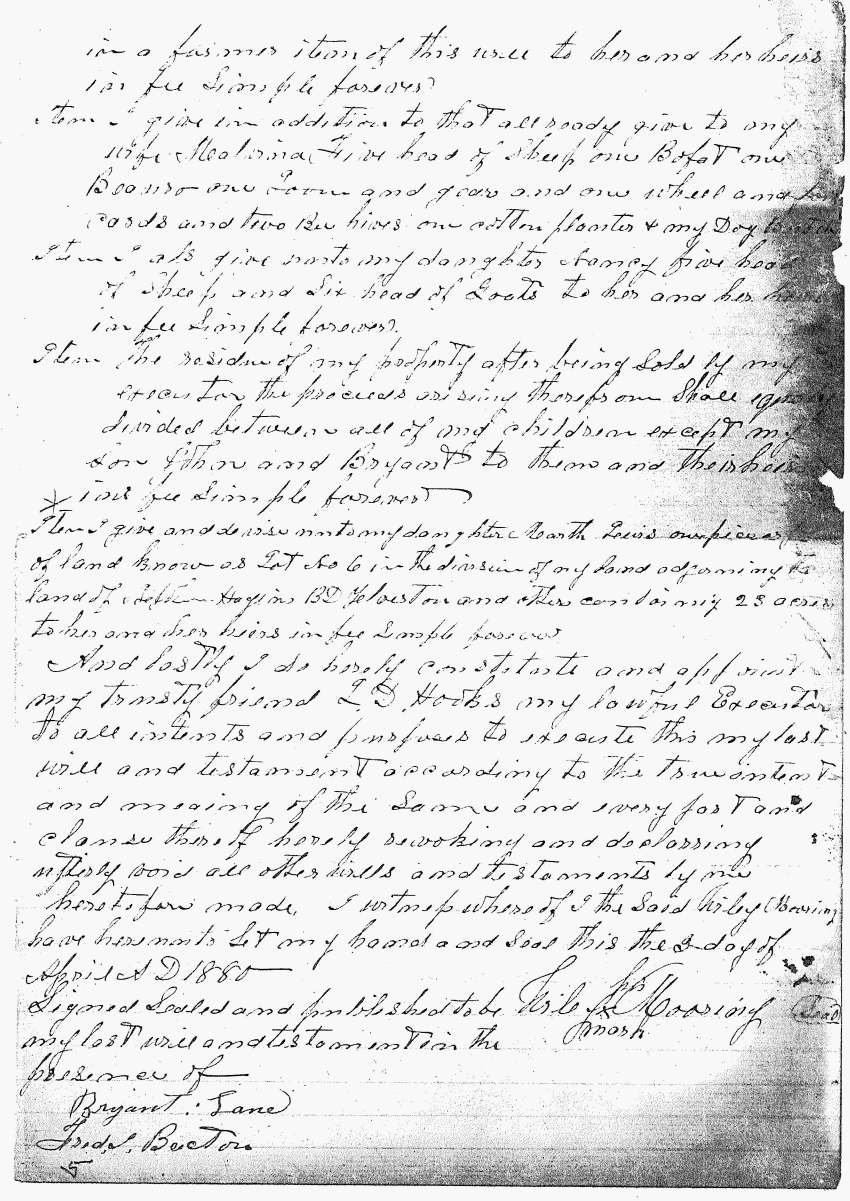 in a former item of this will to her and her heirs
in fee Simple forever
Item I give in addition to that allready give to my
wife Malvina Five head of Sheep one Bofat one
Beauro one Loom and gear and one wheel and
cards and two Bee hives one cotton planter & my Dog
Item I als give unto my daughter Nancy five head
of Sheep and Six head of Goats to her and her heirs
in fee Simple forever.
Item The residue of my property after being Sold by my
executor the proceeds arising therefrom Shall equally
divided between all of my children except my
Son John and Bryant to them and their heirs
in fee Simple forever
Item I give and devise unto my daughter Marth Lewis one piece
of land know as Lot No 6 in the division of my land adjorning the
land of Hogins BD Yelverton and other containig 23 acres
to her and her heirs in fee Simple forever
And lastly I do herely constitute and appoint
my trusty friend L D Hooks my lawful Executor
to all intents and purposes to execute this my last
will and testament according to the true intent
and meaing of the Same and every part and
clause thereof herely revoking and declarring
utterly void all other wills and testaments by me
heretofore made. I witness whereof I the Said Wiley Mooring
have hereunto Set my hand and Seal this the 3 day of
April A D 1880
Signed Sealed and published to be Wile X Mooring Seal
mark
my last will and testament in the
presence of
Bryant Lane
Fred. I. Becton